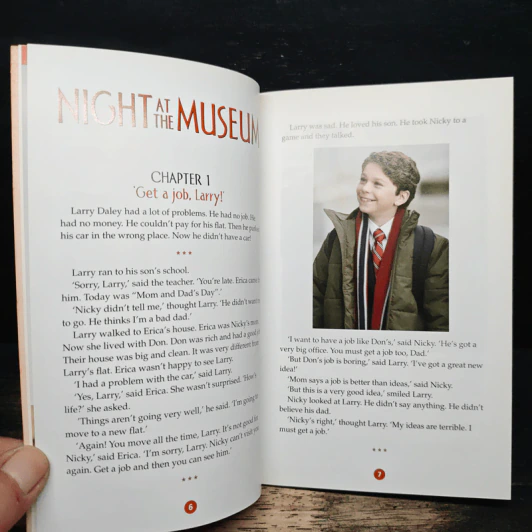 NIGHT AT THE MUSEUM
CHAPTER 1
'Get a job, Larry!'
Larry Daley had a lot of problems. He had no job. He
had no money. He couldn't pay for his flat. Then he
his car in the wrong place. Now he didn't have a car!
* * *
Larry ran to his son's school.
'Sorry, Larry,' said the teacher. 'You're late. Erica
him. Today was "Mom and Dad's Day".'
'Nicky didn't tell me,' thought Larry. 'He didn't want
to go. He thinks I'm a bad dad.'
Larry walked to Erica's house. Erica was Nicky's
Now she lived with Don. Don was rich and had a good
Their house was big and clean. It was very different
Larry's flat. Erica wasn't happy to see Larry.
'I had a problem with the car,' said Larry.
'Yes, Larry,' said Erica. She wasn't surprised. 'How's
life?' she asked.
'Things aren't going very well,' he said. 'I'm going to
move to a new flat.'
'Again! You move all the time, Larry. It's not good for
Nicky,' said Erica. 'I'm sorry, Larry. Nicky can't visit you
again. Get a job and then you can see him.'
* * *
6
Larry was sad. He loved his son. He took Nicky to a
game and they talked.
'I want to have a job like Don's,' said Nicky. 'He's got a
very big office. You must get a job too, Dad.'
'But Don's job is boring,' said Larry. 'I've got a great new
idea!'
'Mom says a job is better than ideas,' said Nicky.
'But this is a very good idea,' smiled Larry.
Nicky looked at Larry. He didn't say anything. He didn't
believe his dad.
'Nicky's right,' thought Larry. 'My ideas are terrible. I
must get a job.'
* * *
7